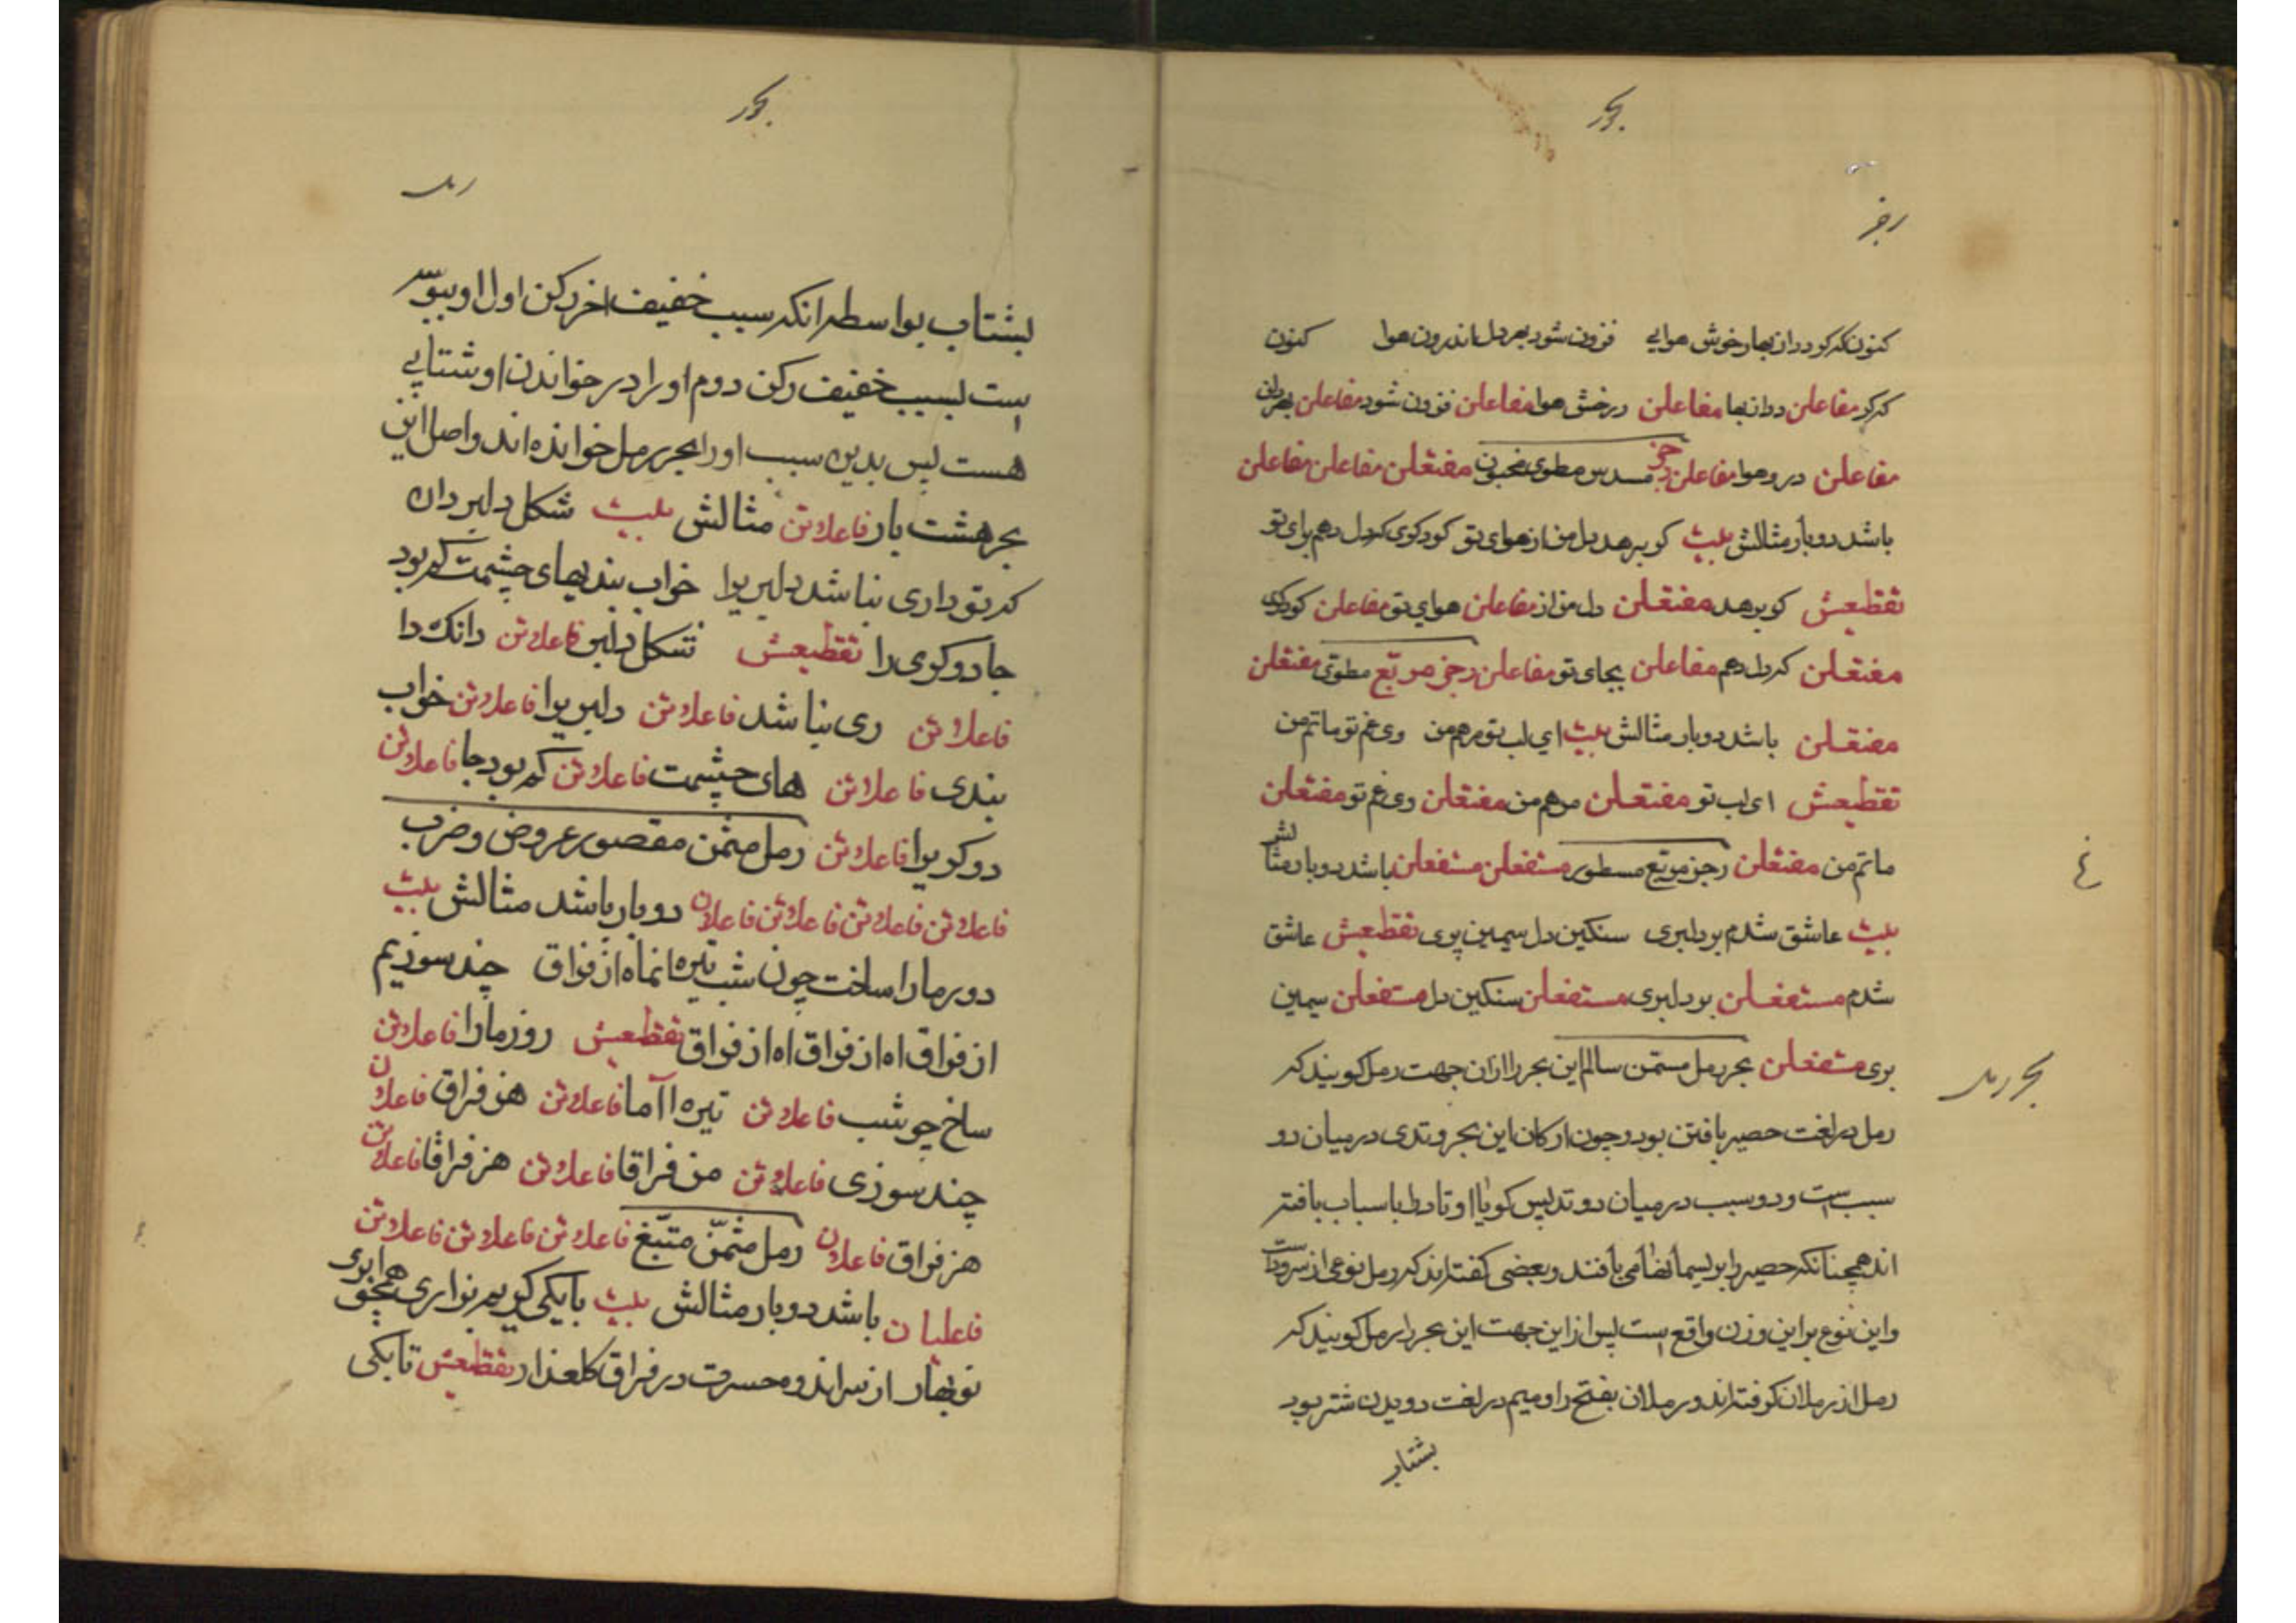 بحور
رجز
کنون نکر کودد ازبهار خوش هوایی فزون شود بهر دل اندرون هوا کنون
کرکر مفاعلن ددازبها مفاعلن رخش هوا مفاعلن فزون شود مفاعلن بهردلن
مفاعلن درو هوا مفاعلن رجز مسدس مطوی مخبون مفتعلن مفاعلن مفاعلن
باشد دو بار مثالش بیت کو برهد دل من از هوای تو کودکوی کردل دهم بجای تو
تقطیعش کو برهد مفتعلن دل من از مفاعلن هوای تو مفاعلن کودکوی
مفتعلن کردل دهم مفاعلن بجای تو مفاعلن رجز مربّع مطوّی مفتعلن
مفتعلن باشد دو بار مثالش بیت ای لب تو مرهم من وی غم تو ماتم من
تقطیعش ای لب تو مفتعلن مرهم من مفتعلن وی غم تو مفتعلن
ماتم من مفتعلن رجز مربّع مسطور مستفعلن مستفعلن باشد دو بار مثالش
بیت عاشق شدم بر دلبری سنکین دل سیمین بری تقطیعش عاشق
شدم مستفعلن بر دلبری مستفعلن سنکین دل مستفعلن سیمین
بری مستفعلن بحر رمل مسثمن سالم این بحر را ازان جهت رمل کویند که
بحر رمل
رمل در لغت حصیر بافتن بود و چون ارکان این بحر وتدی در میان دو
سبب است و دو سبب در میان دو وتد پس کویا اوتاد را با سباب بافته
اند همچنانکه حصیر را بریسمانها می بافند و بعضی کفته اند که رمل نوعی از سرود است
و این نوع بر این وزن واقع است پس ازاین جهت این بحر را رمل کویند که
رمل از رملان کرفته اند و رملان بفتح را و میم در لغت دویدن شتر بود
بشتاب
بحور
رمل
بشتاب بواسطه انکه سبب خفیف اخر رکن اول او پیوسته
است بسبب خفیف رکن دوم او را در خواندن او شتابی
هست پس بدین سبب او را بحر رمل خوانده اند و اصل این
بحر هشت بار فاعلاتن مثالش بیت شکل دلبر دان
که تو داری نباشد دلبریرا خواب بندیهای چشمت کم بود
جادوکری را تقطیعش شکل دلبر فاعلاتن دانک دا
فاعلاتن ری نباشد فاعلاتن دلبریرا فاعلاتن خواب
بندی فاعلاتن های چشمت فاعلاتن کم بود جا فاعلاتن
دوکریرا فاعلاتن رمل مثمن مقصور عروض و ضرب
فاعلاتن فاعلاتن فاعلاتن فاعلان دو بار باشد مثالش بیت
دور مارا ساخت چون شب تیره انماه از فراق چند سوزیم
از فراق اه از فراق اه از فراق تقطیعش روز مارا فاعلاتن
ساخ چو شب فاعلاتن تیره اآما فاعلاتن هز فراق فاعلان
چند سوزی فاعلاتن من فراقا فاعلاتن هز فراقا فاعلاتن
هز فراق فاعلان رمل مثمّن متبّغ فاعلاتن فاعلاتن فاعلاتن
فاعلیان باشد دو بار مثالش بیت بایکی کویم بزاری همچو ابری
نوبهار از سر اندوه حسرت در فراق کلعذار تقطیعش تابکی